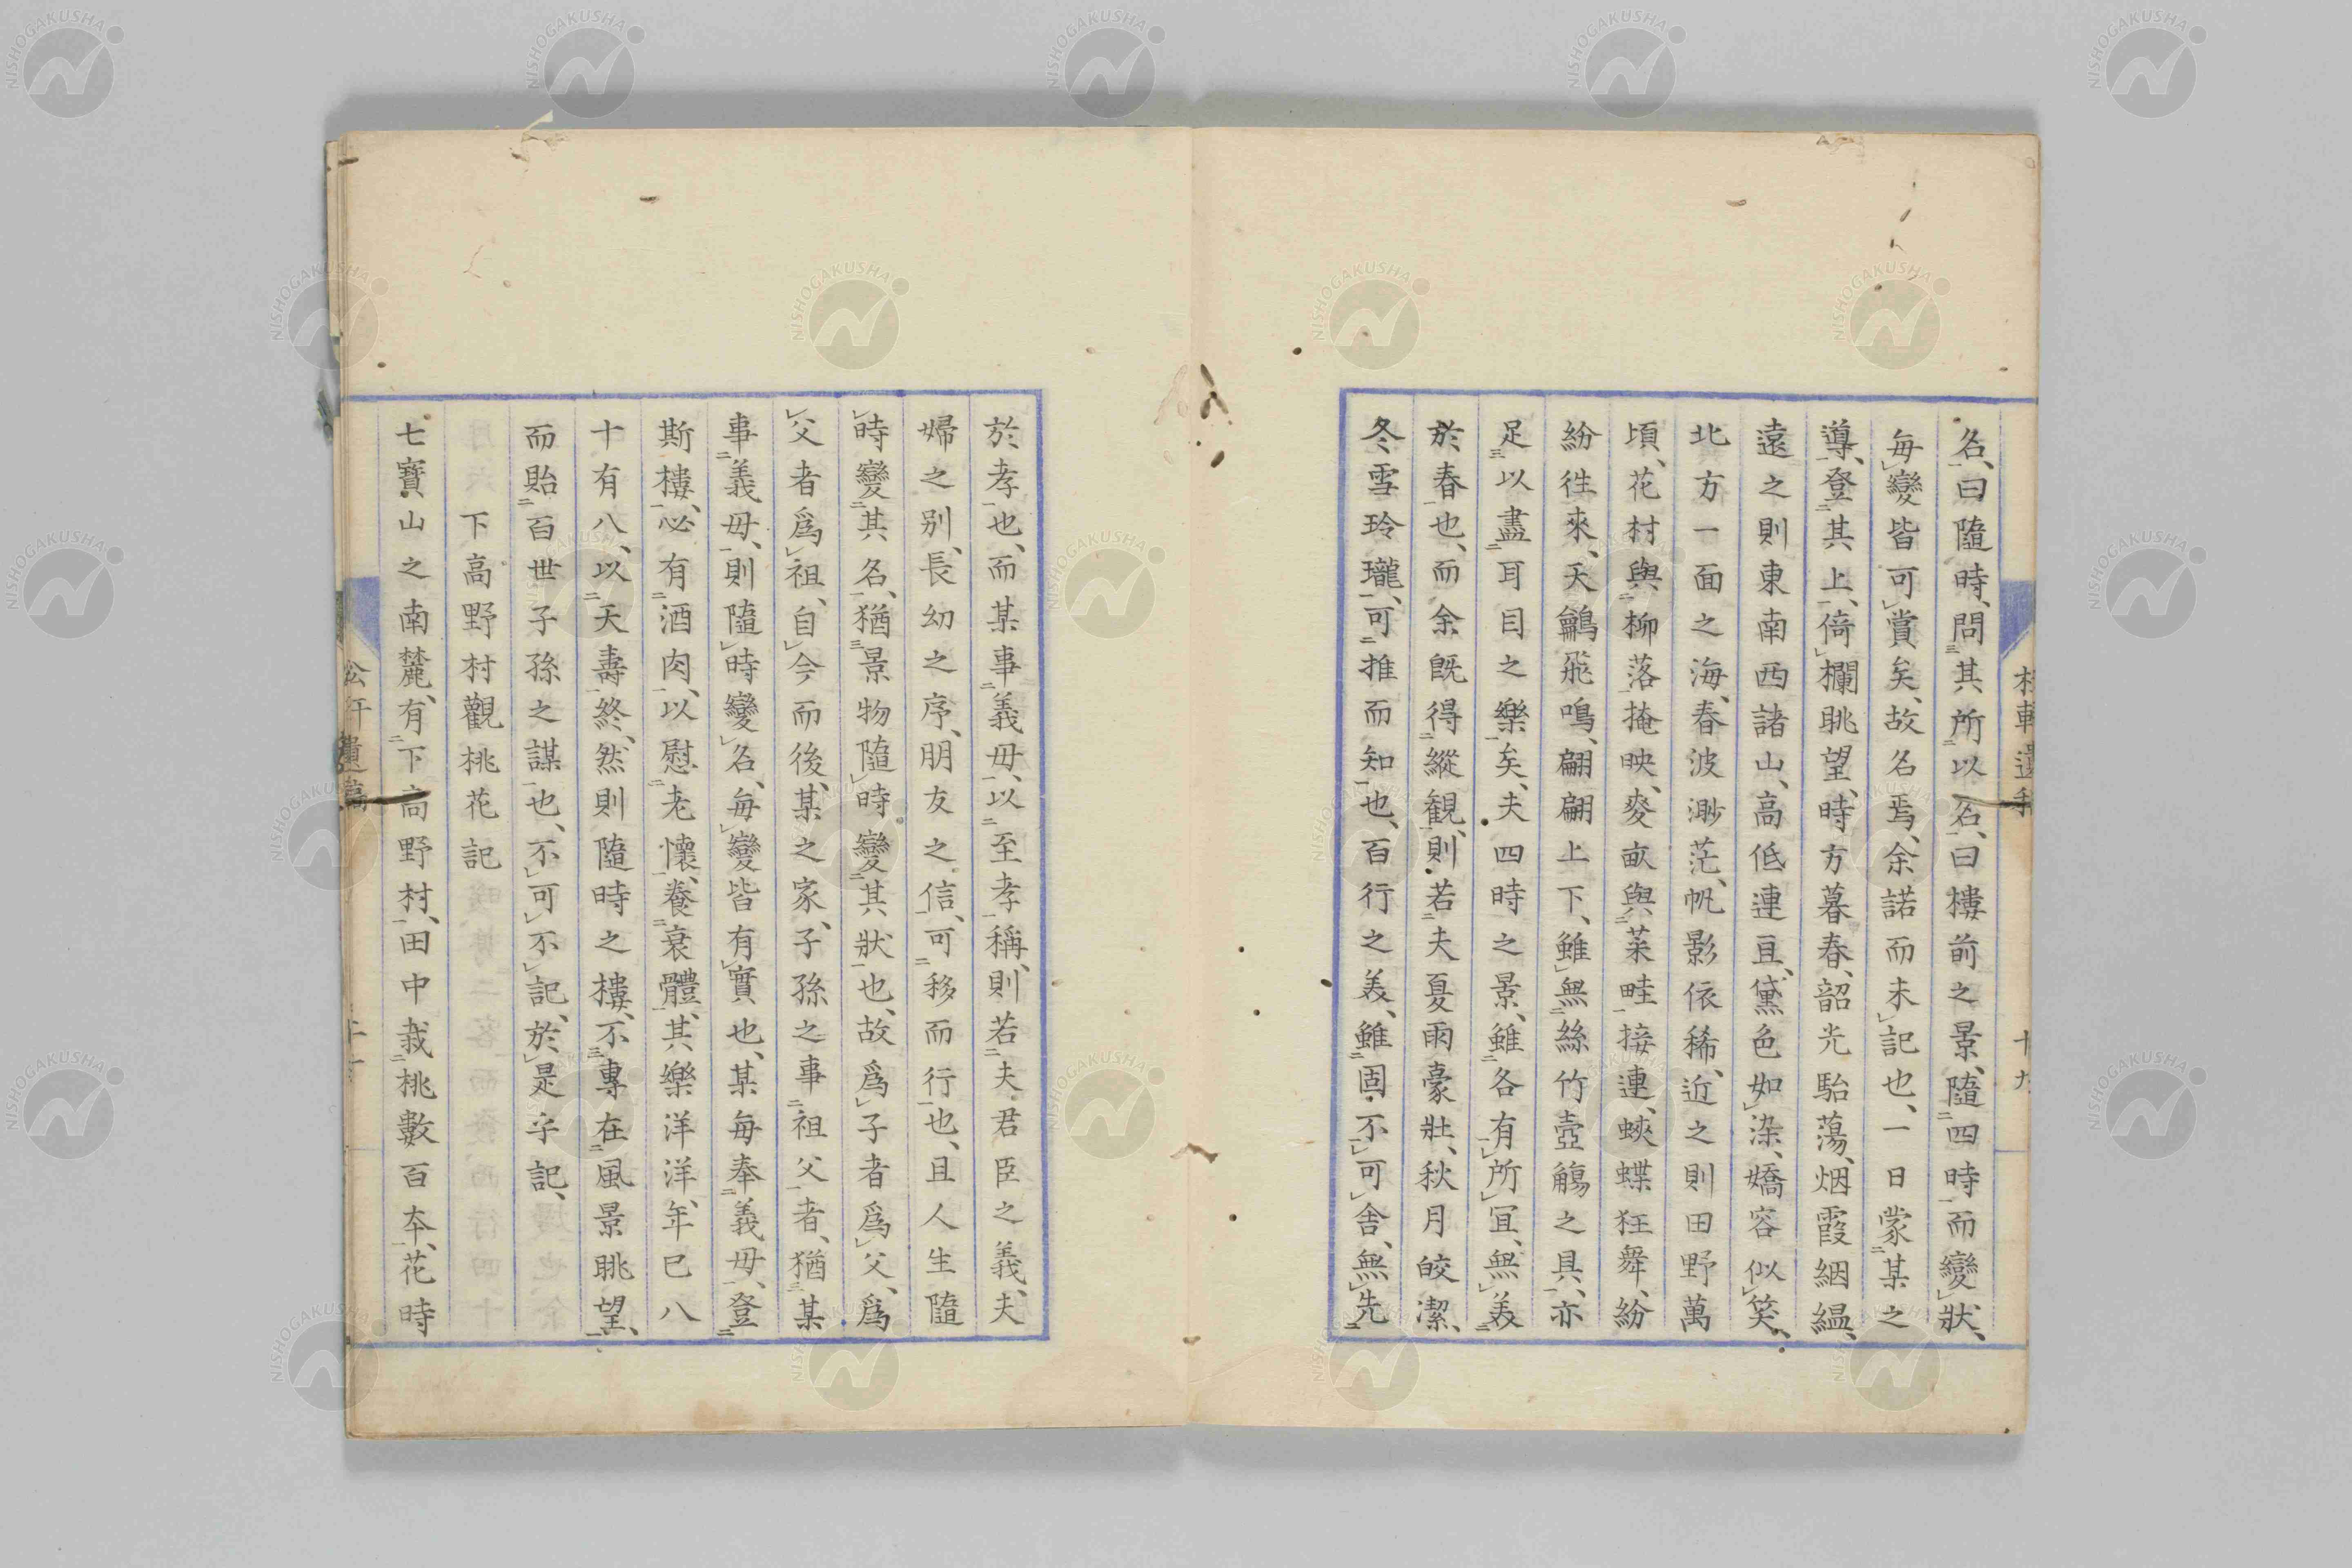 名、曰隨時、問其所以名、曰樓前之景、隨四時而變狀、
每變皆可賞矣、故名焉、余諾而未記也、一日蒙某之
導、登其上、倚欄眺望、時方暮春、韶光駘蕩、烟霞絪縕、
遠之則東南西諸山、高低連亘、黛色如染、嬌容似笑、
北方一面之海、春波渺茫、帆影依稀、近之則田野萬
頃、花村與柳落掩映、麥畝與菜畦接連、蛺蝶狂舞、紛
紛徃來、天鷚飛鳴、翩翩上下、雖無絲竹壺觴之具、亦
足以盡耳目之樂矣、夫四時之景、雖各有所冝、無美
於春也、而余旣得縱観、則若夫夏雨豪壯、秋月皎潔、
冬雪玲瓏、可推而知也、百行之美、雖固不可舍、無先
於孝也、而某事義母、以至孝稱、則若夫君臣之義、夫
婦之別、長幼之序、朋友之信、可移而行也、且人生隨
時變其名、猶景物隨時變其狀也、故爲子者爲父、爲
父者爲祖、自今而後、某之家、子孫之事祖父者、猶某
事義母、則隨時變名、每變皆有實也、某每奉義母、登
斯樓、必有酒肉、以慰老懷、養衰體、其樂洋洋、年已八
十有八、以天壽終、然則隨時之樓、不專在風景眺望、
而貽百世子孫之謀也、不可不記、於是乎記、
下高野村觀桃花記
七寶山之南麓、有下高野村、田中栽桃數百本、花時
NISHOGAKUSHA